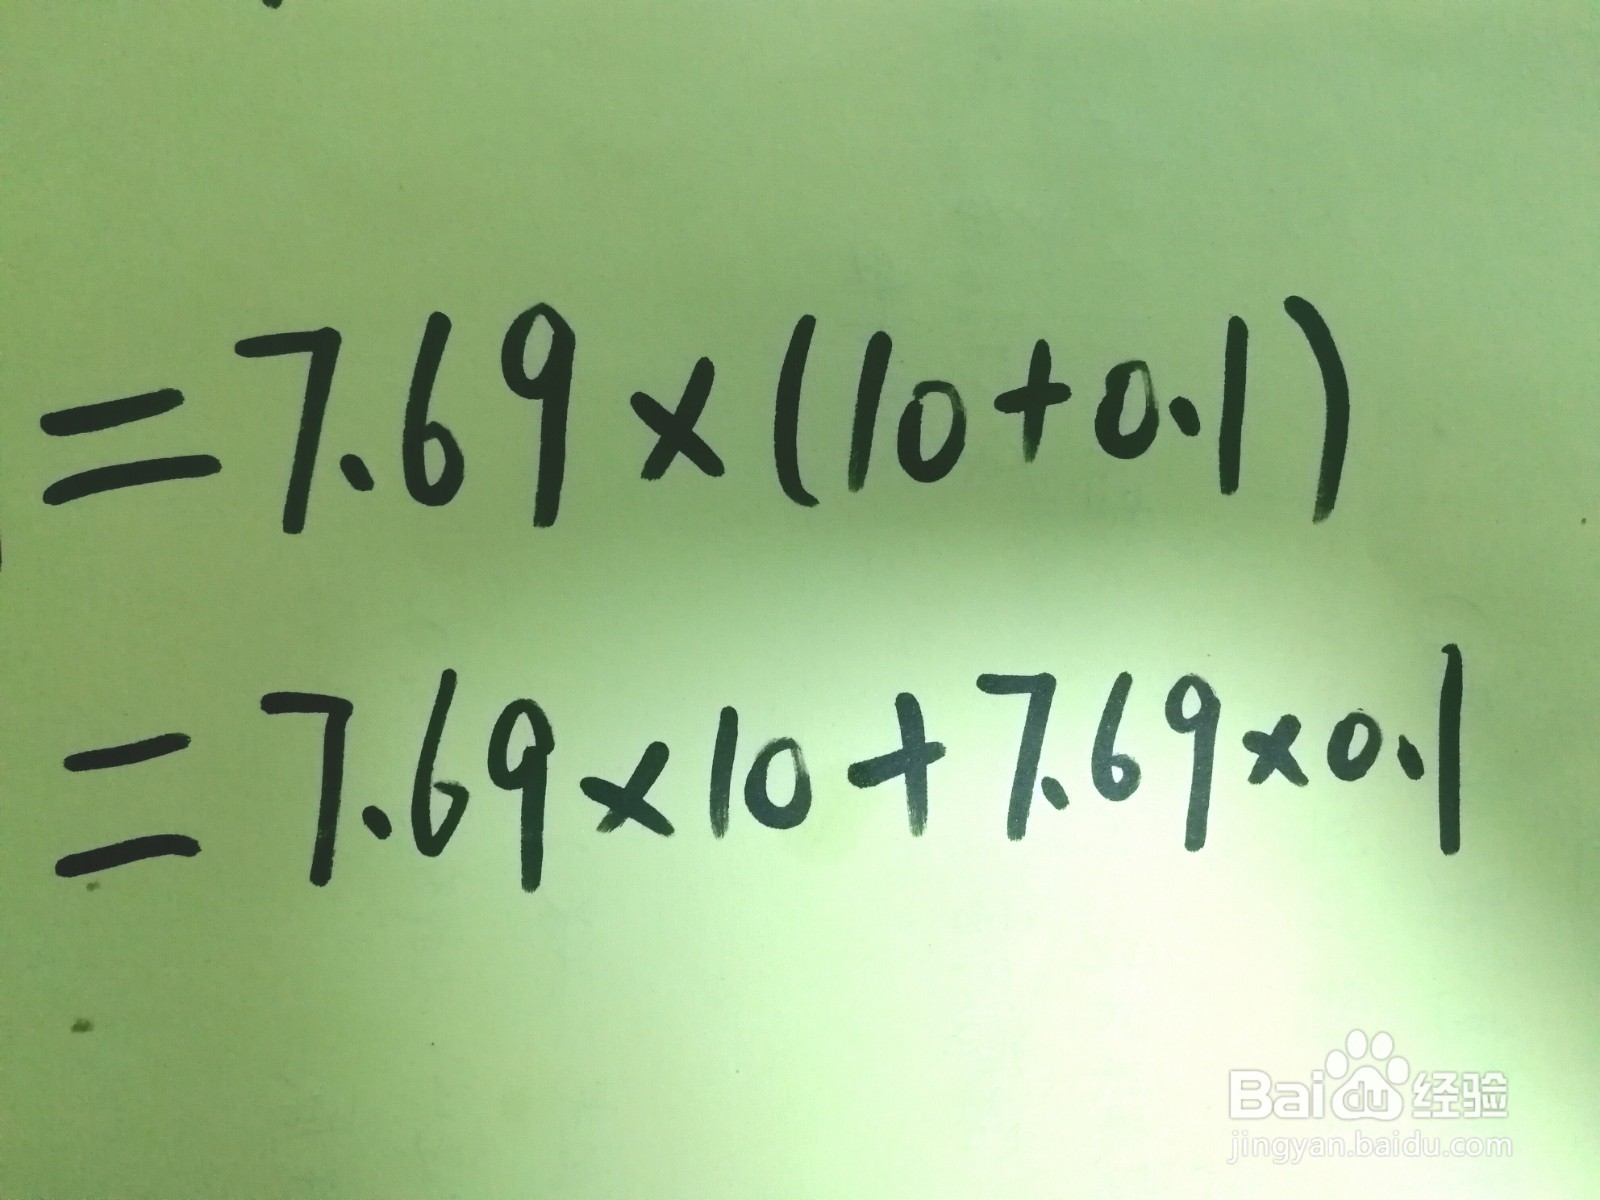 =7.69×(10+0.1)
=7.69×10+7.69×0.1
Baidu经验
jingyan.baidu.com